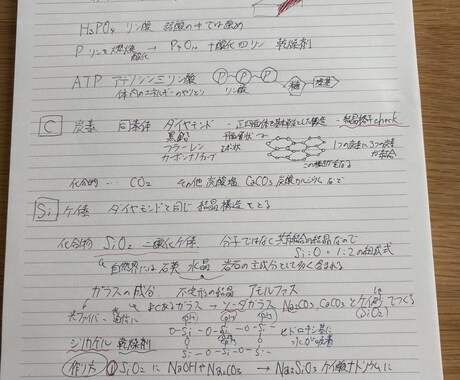 H₃PO₄ リン酸 弱酸の中では強め
P リンを燃焼 → P₄O₁₀ 十酸化四リン 乾燥剤
酸化
ATP アデノシン三リン酸 P P P 糖 塩基
体内のエネルギーのやりとり リン酸
C 炭素 同素体 ダイヤモンド 正四面体を基本単位とした構造 結晶格子check
黒鉛 平面層状
フラーレン
カーボンナノチューブ
1つの炭素に3つの炭素が結合
化合物 … CO₂ その他 炭酸塩 CaCO₃ 炭酸カルシウムなど
Si ケイ素 ダイヤモンドと同じ結晶構造をとる
化合物 SiO₂ 二酸化ケイ素 分子ではなく共有結合の結晶なので
Si:O = 1:2の組成式
自然界には石英 水晶 岩石の主成分として多く含まれる
ガラスの成分 不定形の結晶 アモルファス
光ファイバー よくあるガラス → ソーダガラス Na₂CO₃, CaCO₃とケイ砂でつくる
(SiO₂)
(OH) (OH) (OH)
O-Si-O-Si-O-Si-
シリカゲル 乾燥剤 O O O ヒドロキシ基に
Si-O-Si-O-Si-
作り方 ① SiO₂ に NaOHやNa₂CO₃ → Na₂SiO₃ ケイ酸ナトリウムに